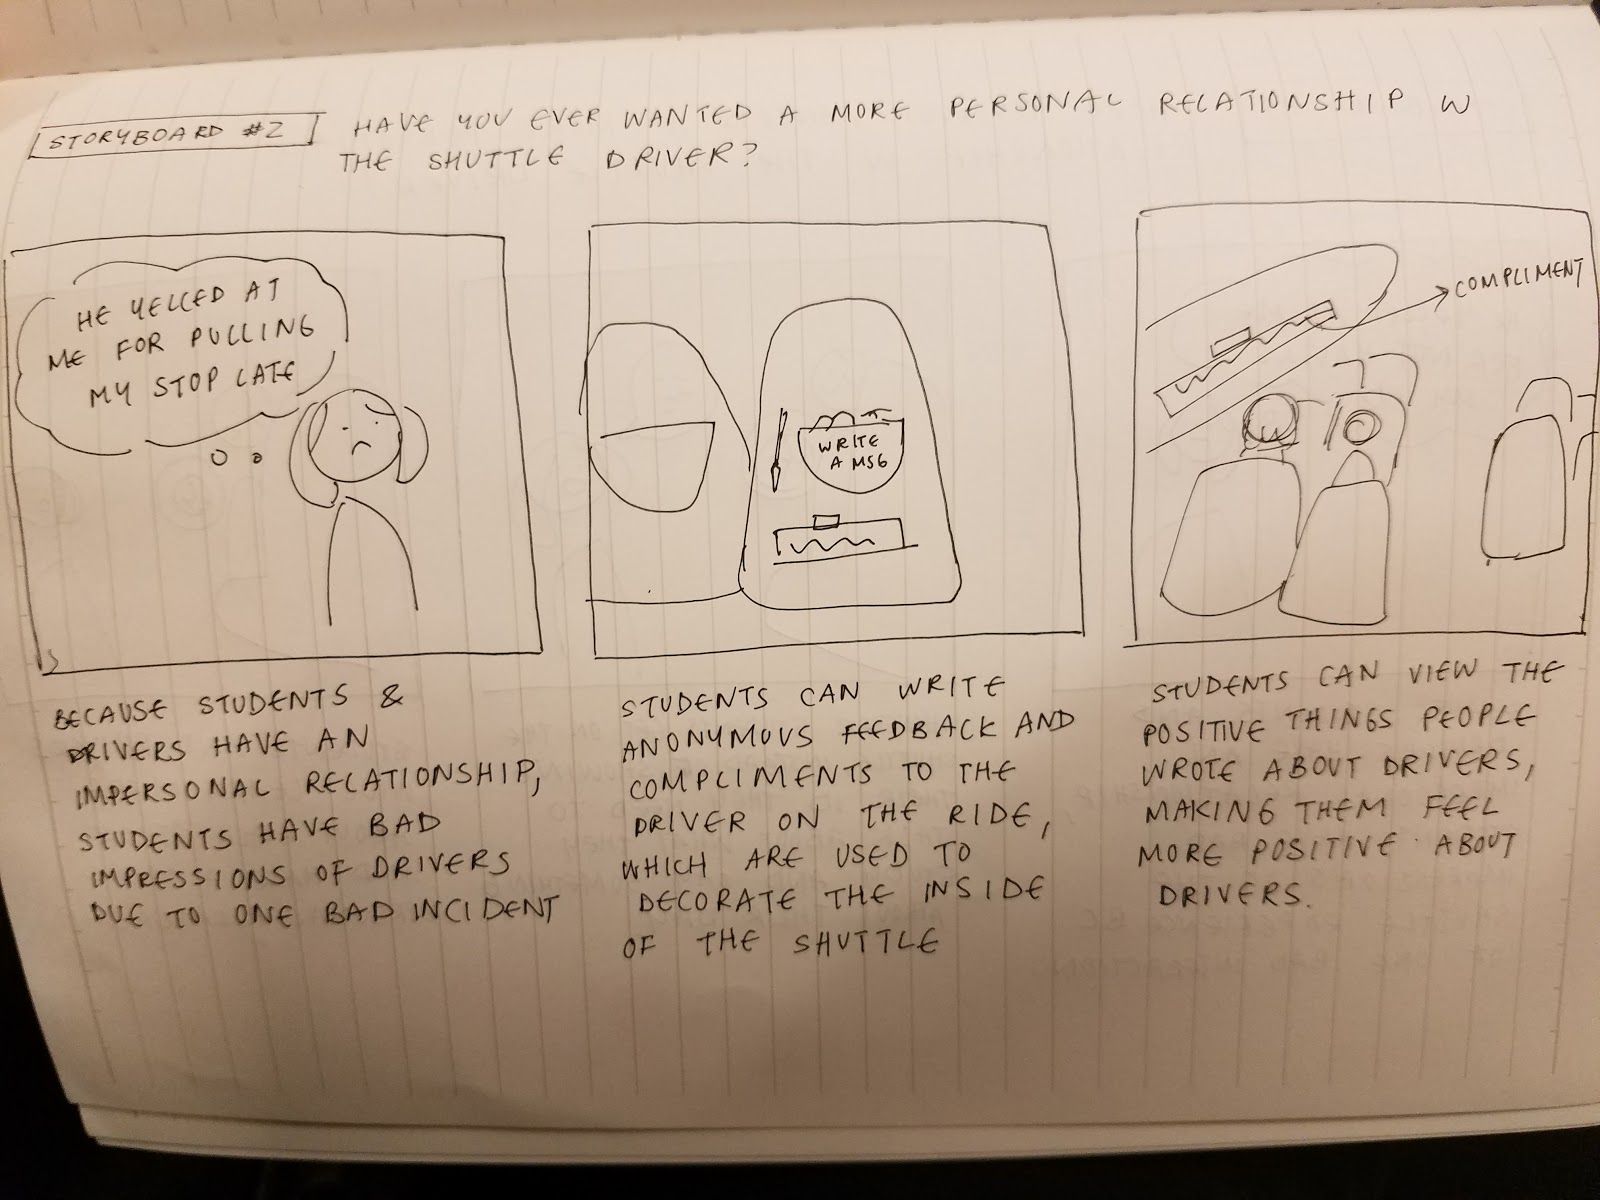 STORYBOARD #2
HAVE YOU EVER WANTED A MORE PERSONAL RELATIONSHIP W
THE SHUTTLE DRIVER?
HE YELLED AT
ME FOR PULLING
MY STOP LATE
BECAUSE STUDENTS &
DRIVERS HAVE AN
IMPERSONAL RELATIONSHIP,
STUDENTS HAVE BAD
IMPRESSIONS OF DRIVERS
DUE TO ONE BAD INCIDENT
WRITE
A MSG
STUDENTS CAN WRITE
ANONYMOUS FEEDBACK AND
COMPLIMENTS TO THE
DRIVER ON THE RIDE,
WHICH ARE USED TO
DECORATE THE INSIDE
OF THE SHUTTLE
COMPLIMENT
STUDENTS CAN VIEW THE
POSITIVE THINGS PEOPLE
WROTE ABOUT DRIVERS,
MAKING THEM FEEL
MORE POSITIVE ABOUT
DRIVERS.